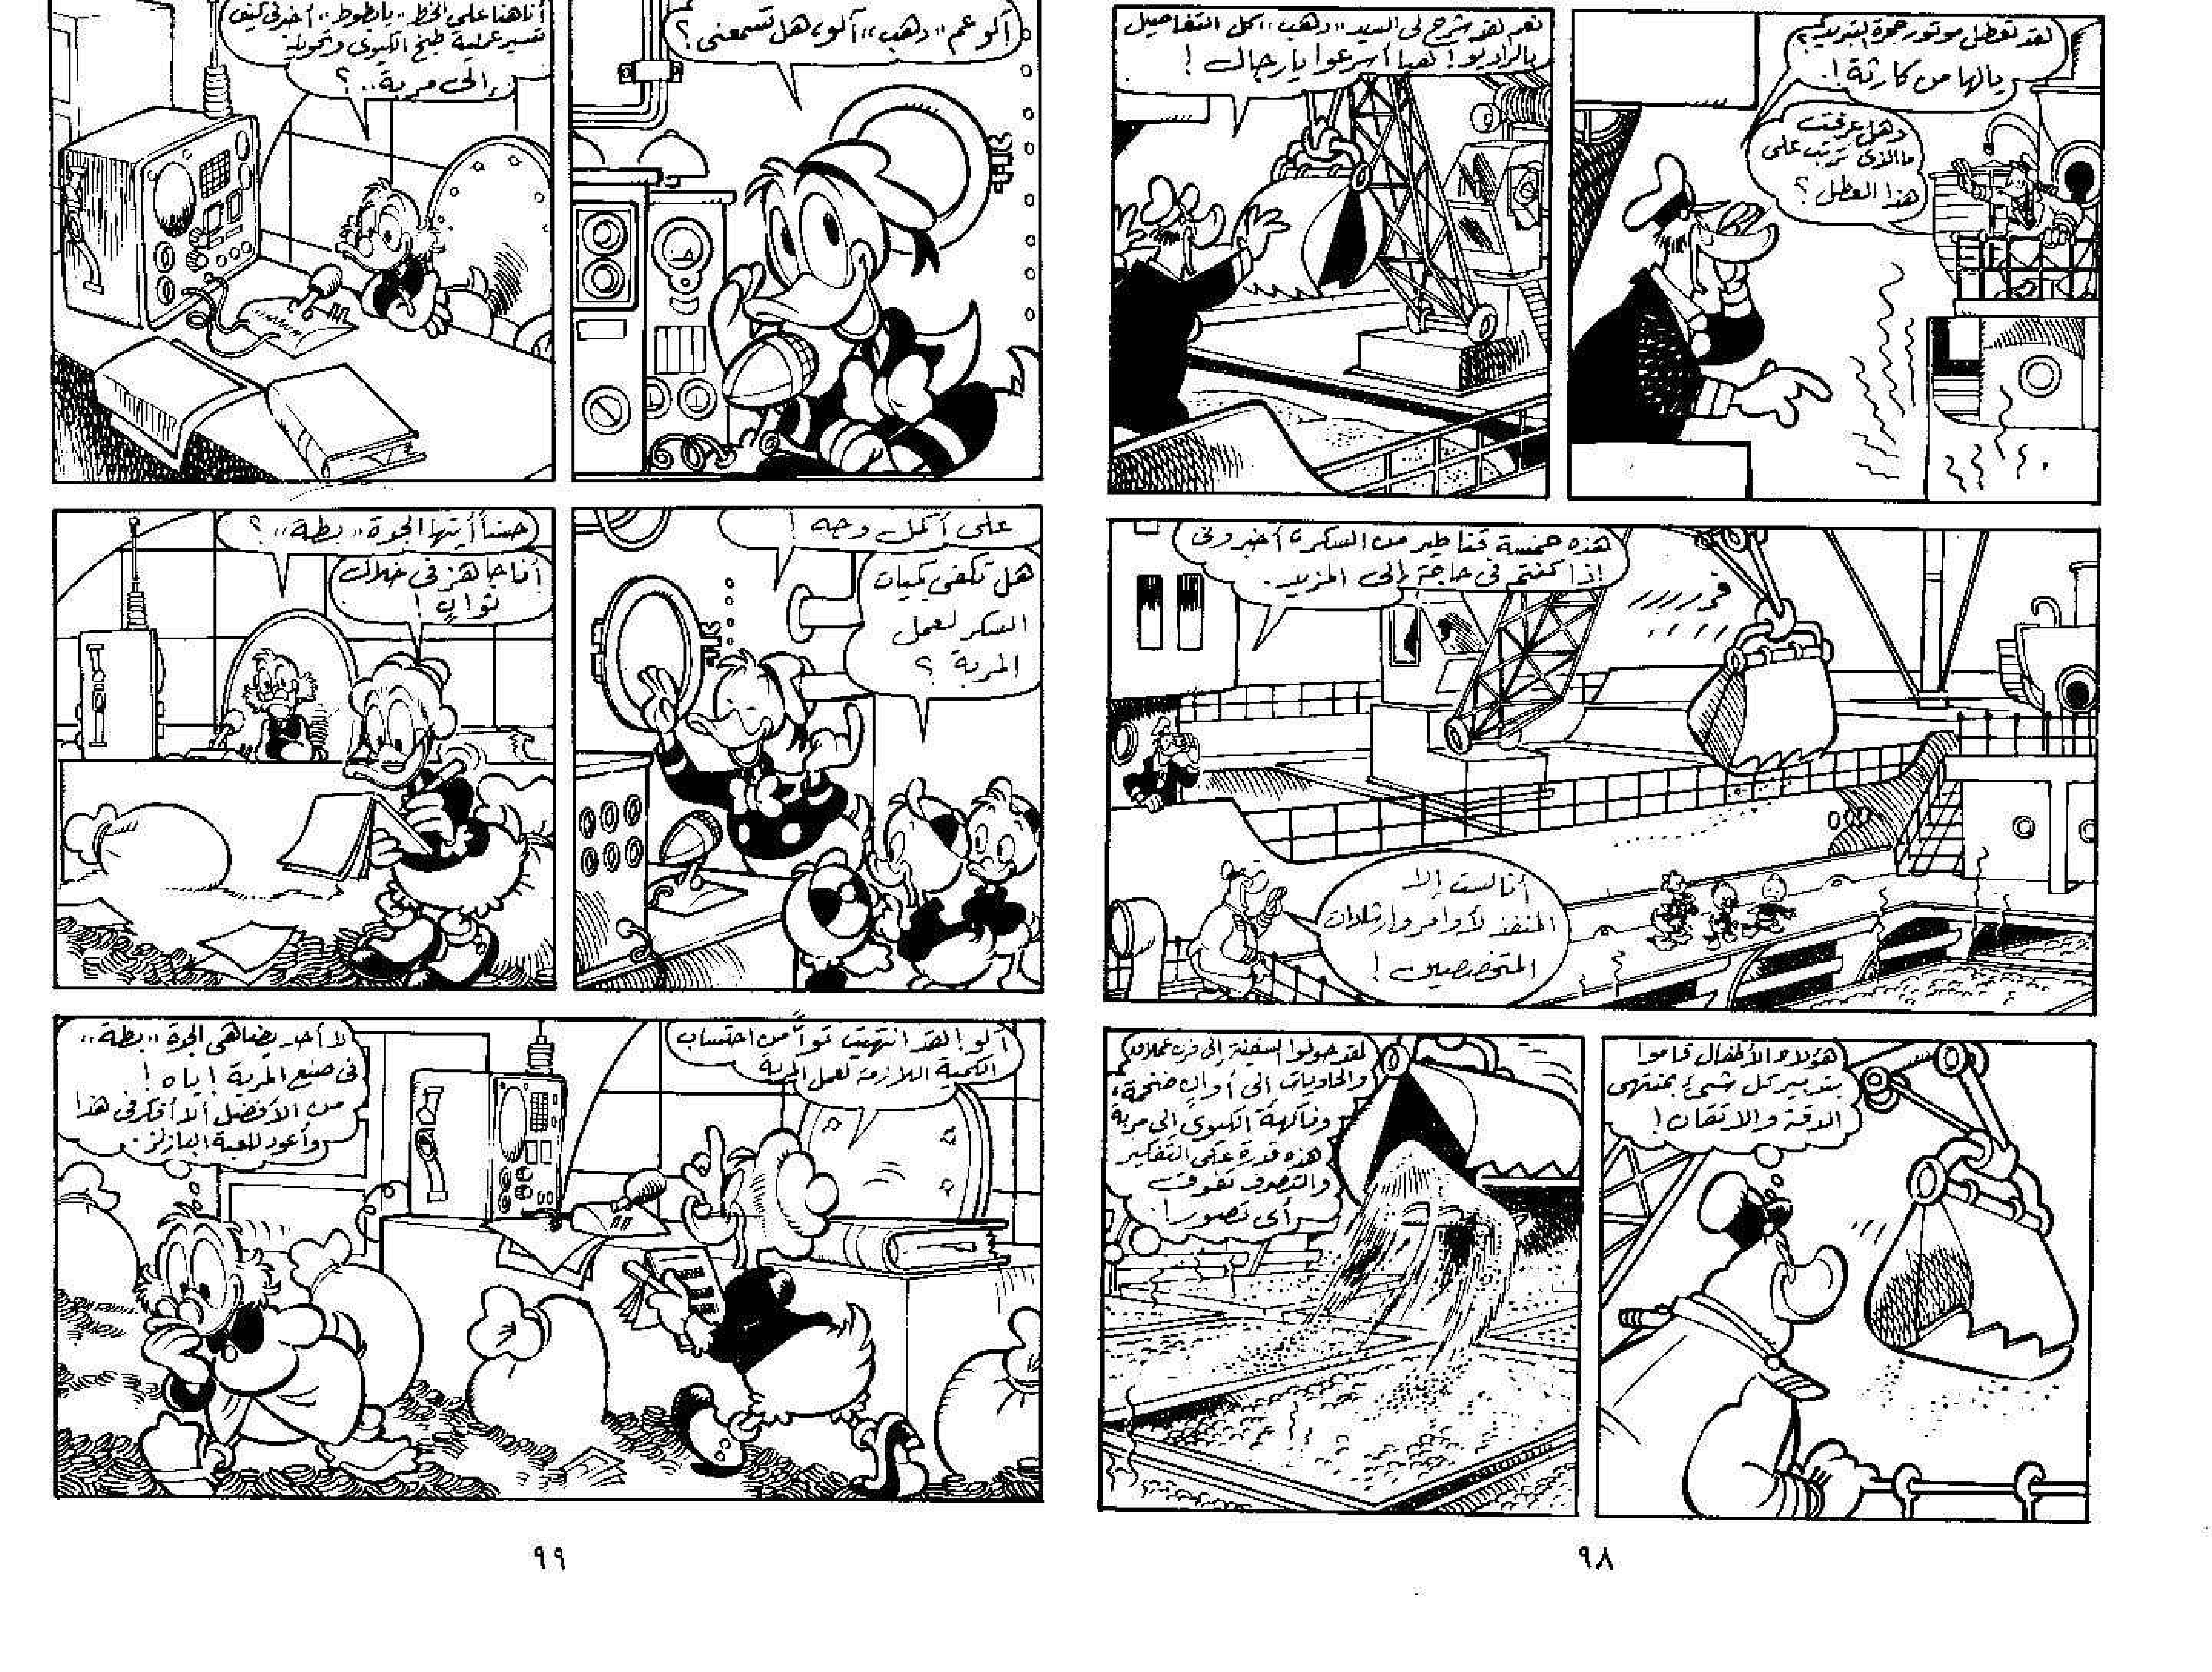 لقد تعطل موتور حجرة التبريد؟
يالها من كارثة!
وهل عرفت
ما الذى ترتب على
هذا العطل؟
نعم لقد شرح لى السيد «دهب» كل التفاصيل
بالراديو! هيا أسرعوا يا رجال!
هذه خمسة قناطير من السكر! أخبرونى
إذا كنتم فى حاجة إلى المزيد.
أنا لست إلا
المنفذ لأوامر وإرشادات
المتخصصين!
هؤلاء الأطفال قاموا
بتدبير كل شىء بمنتهى
الدقة والاتقان!
لقد حولوا السفينة إلى فرن عملاق
والحاويات إلى أوان ضخمة،
وفاكهة الكيوى إلى مربة
هذه قدرة على التفكير
والتصرف تفوق
أى تصور!
٩٨
ألو عم «دهب» ألو، هل تسمعنى؟
أنا هنا على الخط «يا بطوط» أخبرنى كيف
تسير عملية طبخ الكيوى وتحويله
إلى مربة..؟
على أكمل وجه!
هل تكفى كميات
السكر لعمل
المربة؟
حسناً أيتها الجدة «بطة»؟
أنا جاهزة فى خلال
ثوانٍ!
ألو! لقد انتهيت تواً من احتساب
الكمية اللازمة لعمل المربة
لا أحد يضاهى الجدة «بطة»
فى صنع المربة! ياه!
من الأفضل ألا أفكر فى هذا
وأعود للعبة البازلز.
٩٩